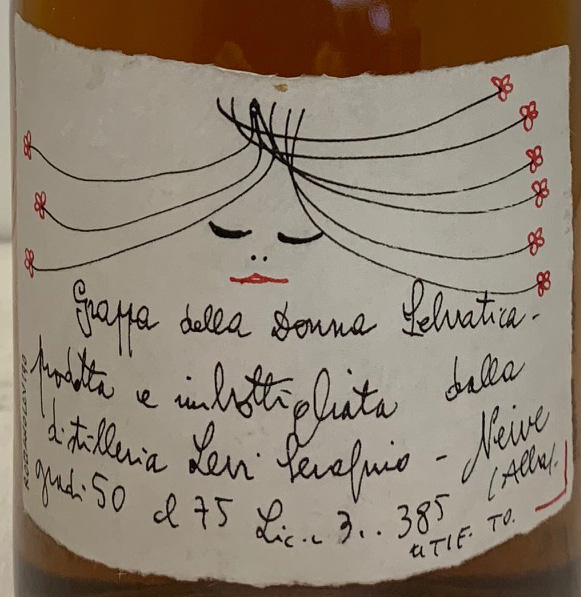 Grappa della Donna Selvatica -
prodotta e imbottigliata dalla
distilleria Levi Serafino - Neive
(Alba).
gradi 50 cl 75 Lic. 3.. 385
UTIF. TO.